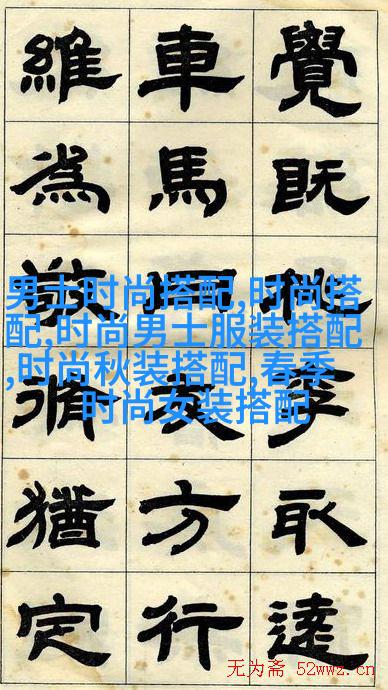 覺既李取遠
車馬友方行
維為敬脩猶定
男士时尚搭配,时尚搭
配,时尚男士服装搭配
,时尚秋装搭配,春季
时尚女装搭配
无为斋 52wwz.cn